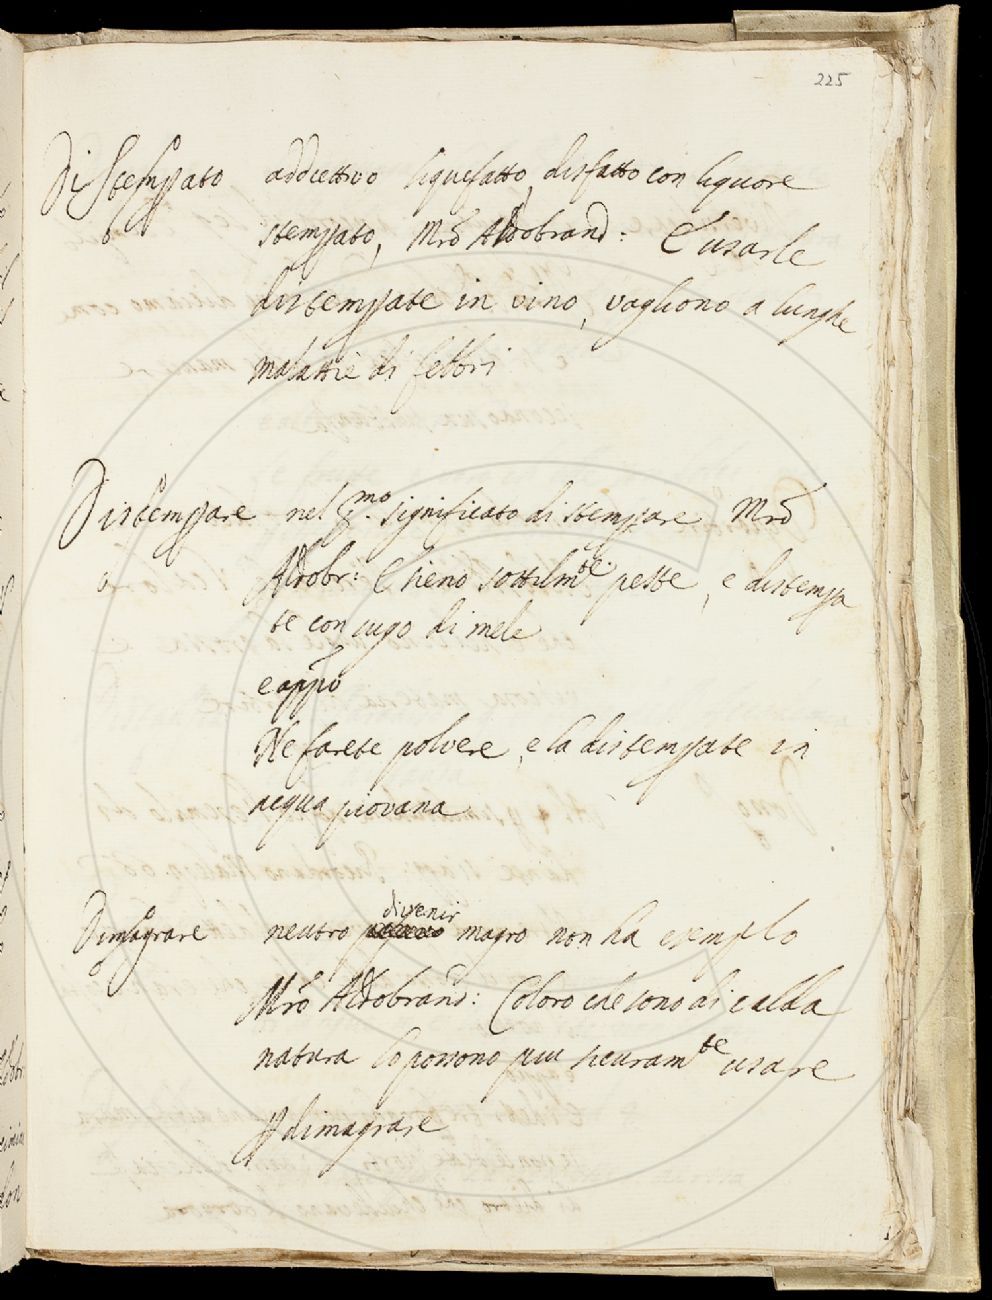 225
Distemperato addiettivo liquefatto, disfatto con liquore
6 stemperato, Mrō Aldobrand: E usarle
distemperate in vino, vagliono a lunghe
malattie di febbri
Distemperare nel pmo. significato di stemperare Mrō
a Aldobr: E sieno sottilmte. peste, e distempera
te con sugo di mele
e appō
Ne farete polvere, e la distemperate in
acqua piovana
Dimagrare neutro divenir magro non ha esemplo
6 Mrō Aldobrand: Coloro che sono di calda
natura lo possono piu sicuramte usare
p dimagrare